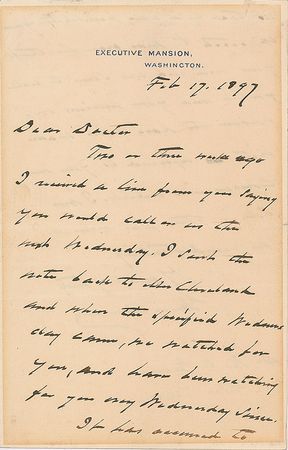 EXECUTIVE MANSION,
WASHINGTON.
Feb 17. 1897
Dear Doctor
Two or three weeks ago
I received a line from you saying
you would call on us the
next Wednesday. I sent the
note back to Mrs Cleveland
and when the specified Wednes
day came, we watched for
you, and have been watching
for you every Wednesday since.
It has occurred to